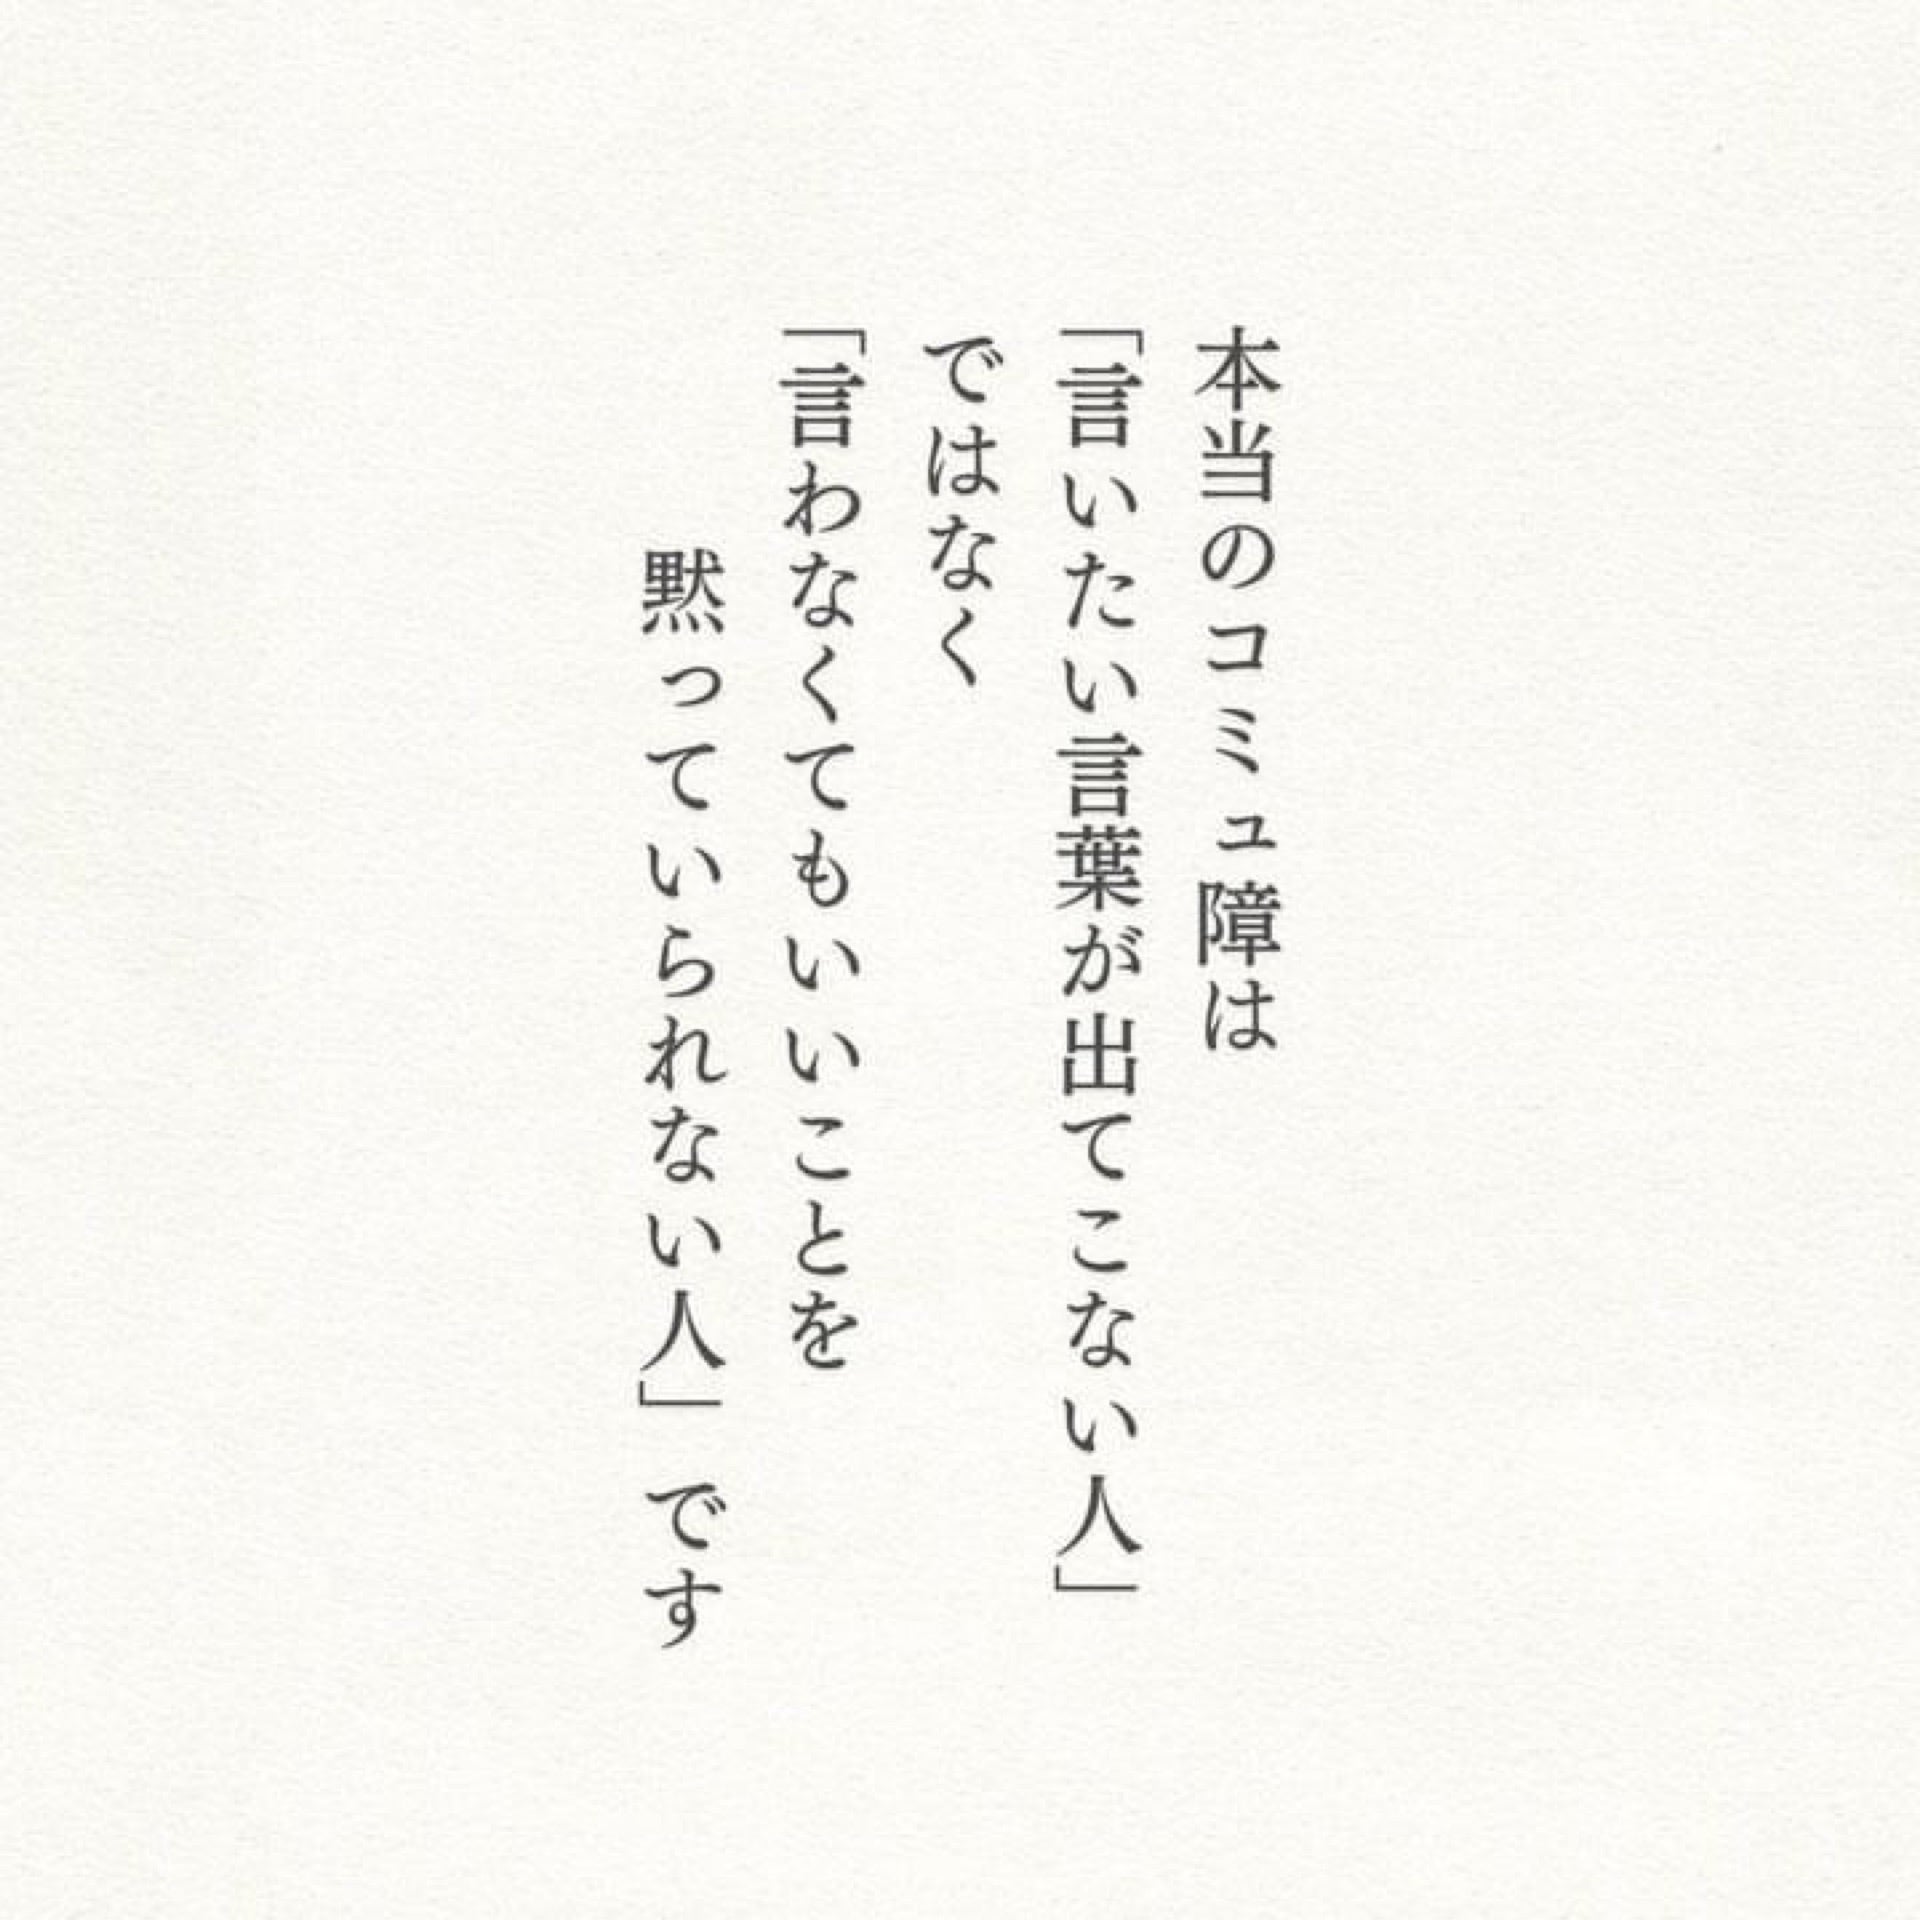 本当のコミュ障は
「言いたい言葉が出てこない人」
ではなく
「言わなくてもいいことを
黙っていられない人」です